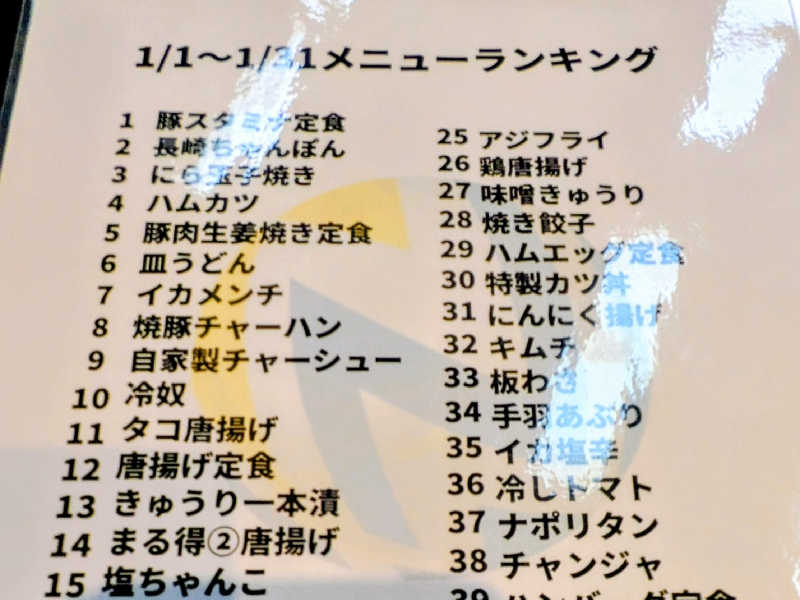 1/1～1/31メニューランキング
1 豚スタミナ定食
2 長崎ちゃんぽん
3 にら玉子焼き
4 ハムカツ
5 豚肉生姜焼き定食
6 皿うどん
7 イカメンチ
8 焼豚チャーハン
9 自家製チャーシュー
10 冷奴
11 タコ唐揚げ
12 唐揚げ定食
13 きゅうり一本漬
14 まる得②唐揚げ
15 塩ちゃんこ
25 アジフライ
26 鶏唐揚げ
27 味噌きゅうり
28 焼き餃子
29 ハムエッグ定食
30 特製カツ丼
31 にんにく揚げ
32 キムチ
33 板わさ
34 手羽あぶり
35 イカ塩辛
36 冷しトマト
37 ナポリタン
38 チャンジャ
39 ハンバーグ定食